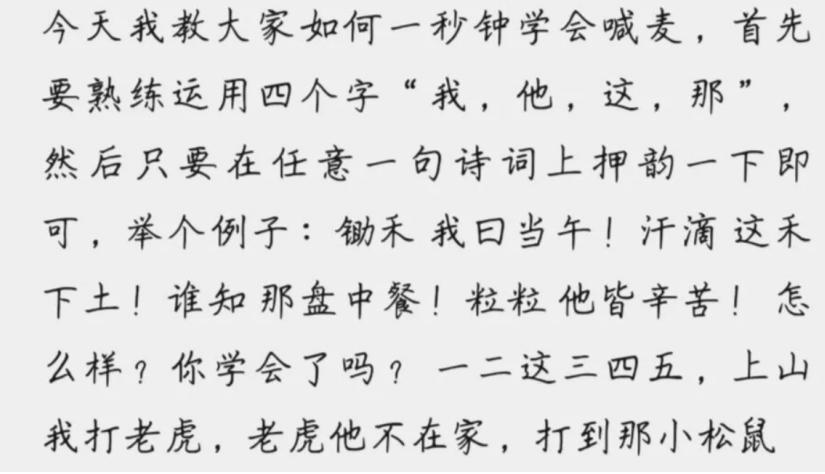 今天我教大家如何一秒钟学会喊麦，首先
要熟练运用四个字“我，他，这，那”，
然后只要在任意一句诗词上押韵一下即
可，举个例子：锄禾 我曰当午！汗滴 这禾
下土！谁知 那盘中餐！粒粒 他皆辛苦！ 怎
么样？你学会了吗？ 一二这三四五，上山
我打老虎，老虎他不在家，打到那小松鼠